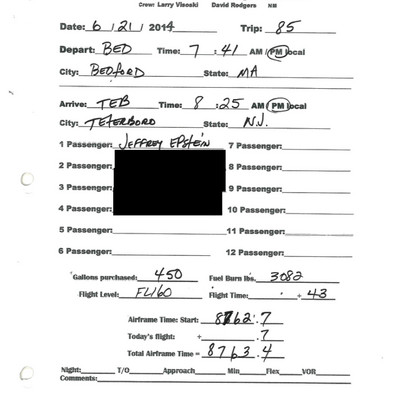 Crew: Larry Visoski David Rodgers NM
Date: 6 / 21 / 2014 Trip: 85
Depart: BED Time: 7 : 41 AM / PM local
City: BEDFORD State: MA
Arrive: TEB Time: 8 : 25 AM / PM local
City: TETERBORO State: N.J.
1 Passenger: JEFFREY EPSTEIN 7 Passenger:
2 Passenger: 8 Passenger:
3 Passenger: 9 Passenger:
4 Passenger: 10 Passenger:
5 Passenger: 11 Passenger:
6 Passenger: 12 Passenger:
Gallons purchased: 450 Fuel Burn lbs. 3082
Flight Level: FL160 Flight Time: . + 43
Airframe Time: Start: 8762.7
Today's flight: + .7
Total Airframe Time = 8763.4
Night: T/O Approach Min Flex VOR
Comments: